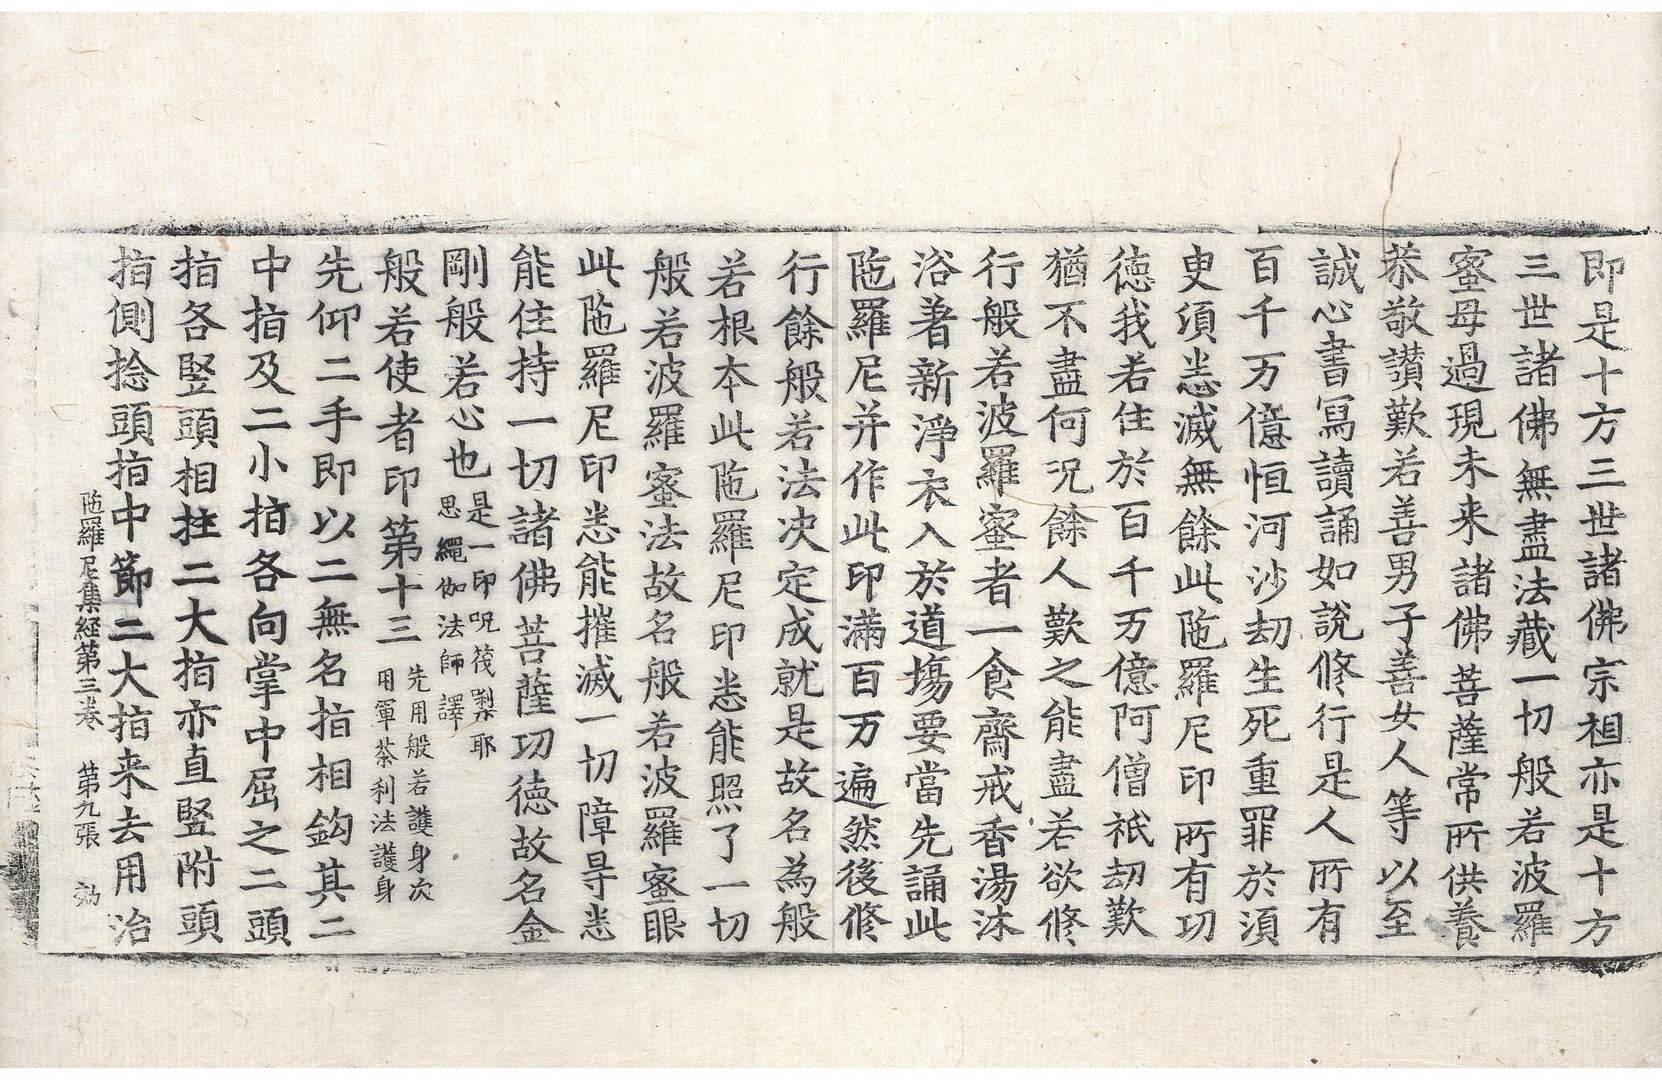 即是十方三世諸佛宗祖亦是十方
三世諸佛無盡法藏一切般若波羅
蜜母過現未来諸佛菩薩常所供養
恭敬讃歎若善男子善女人等以至
誠心書冩讀誦如說修行是人所有
百千万億恒河沙劫生死重罪於湏
㬰湏恙滅無餘此陁羅尼印所有功
徳我若住於百千万億阿僧祇劫歎
猶不盡何况餘人歎之能盡若欲修
行般若波羅蜜者一食齋戒香湯沐
浴著新淨衣入於道場要當先誦此
陁羅尼并作此印滿百万遍然後修
行餘般若法决定成就是故名為般
若根本此陁羅尼印悉能照了一切
般若波羅蜜法故名般若波羅蜜眼
此陁羅尼印悉能摧滅一切障㝵悉
能住持一切諸佛菩薩功徳故名金
剛般若心也是一印呪筏梨耶
思繩伽法師譯
般若使者印第十三先用般若護身次
用軍荼利法護身
先仰二手即以二無名指相鈎其二
中指及二小指各向掌中屈之二頭
指各竪頭相拄二大指亦直竪附頭
指側捻頭指中節二大指来去用治
陁羅尼集経第三卷 第九張 効